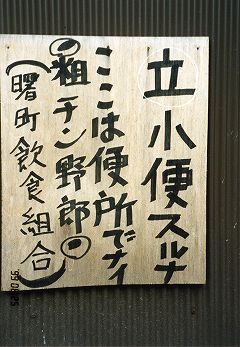 立小便スルナ
ここは便所でナイ
◎粗チン野郎◎
(曙町飲食組合)
99 08 25